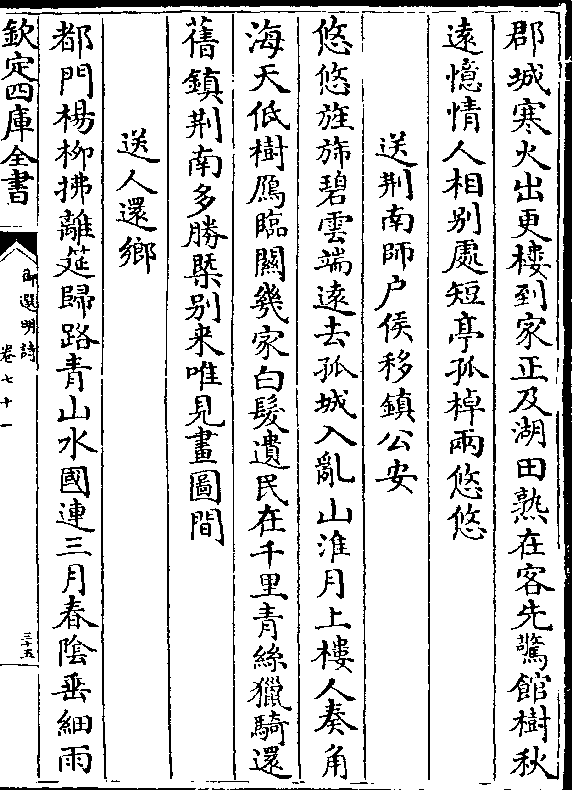 郡城寒火出更樓到家正及湖田熟在客先驚館樹秋
遠憶情人相别處短亭孤棹兩悠悠
送荆南師户侯移鎮公安
悠悠旌斾碧雲端遠去孤城入亂山淮月上樓人奏角
海天低樹鴈臨關幾家白髮遺民在千里青絲獵騎還
舊鎮荆南多勝槩别来唯見畫圖間
送人還鄉
都門楊柳拂離筵歸路青山水國連三月春陰垂細雨
欽定四庫全書
御選明詩
卷七十一
三十五